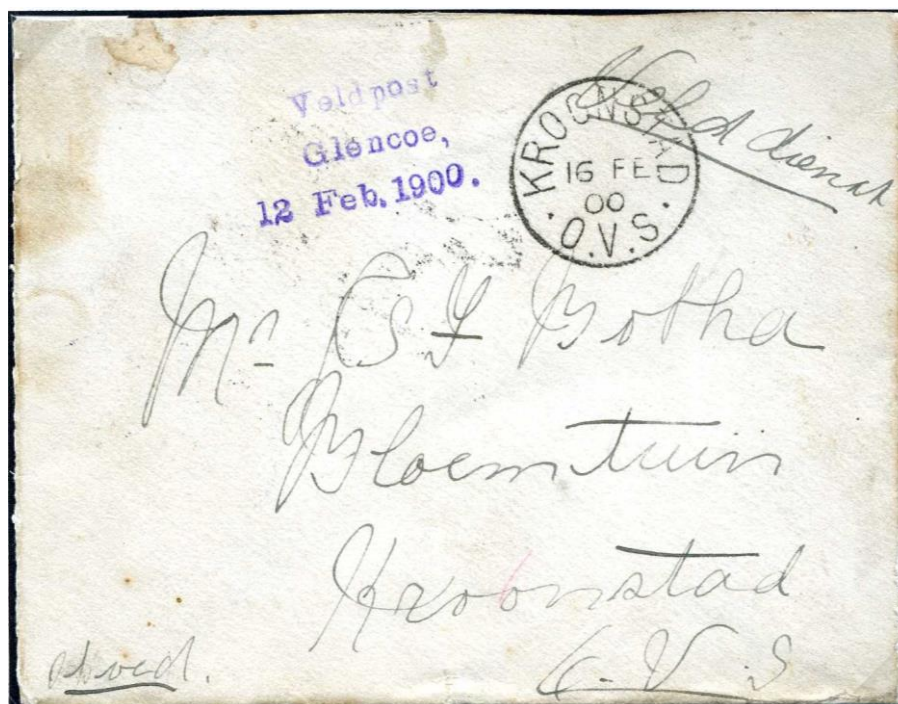 Veldpost
Glencoe,
12 Feb. 1900.
KROONSTAD
16 FE
00
O.V.S.
Veld dienst
Mr Botha
Bloemtuin
Kroonstad
O. V. S